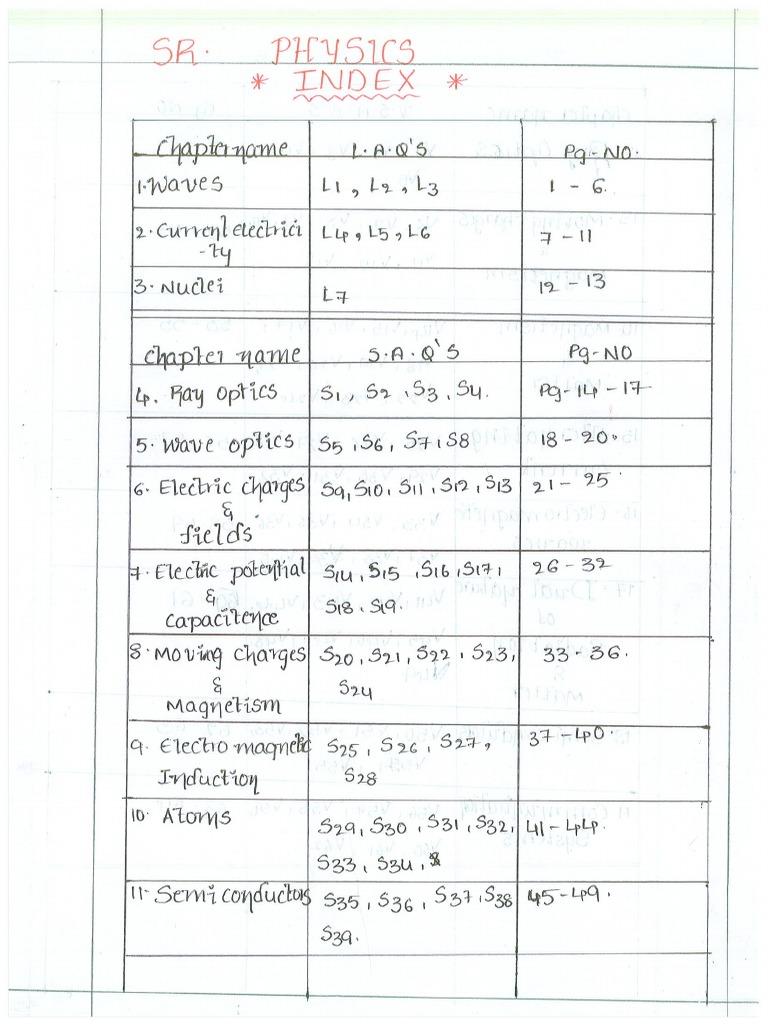 SR. PHYSICS
* INDEX *
Chapter name L.A.Q'S Pg-NO.
1. Waves L1, L2, L3 1 - 6.
2. Current electrici L4, L5, L6 7 - 11
-ty
3. Nuclei L7 12 - 13
Chapter name S.A.Q'S Pg-NO
4. Ray optics S1, S2, S3, S4. Pg-14-17
5. Wave optics S5, S6, S7, S8 18 - 20.
6. Electric charges S9, S10, S11, S12, S13 21 - 25.
&
fields
7. Electric potential S14, S15, S16, S17, 26 - 32
& S18, S19.
capacitence
8. Moving charges S20, S21, S22, S23, 33 - 36.
& S24
Magnetism
9. Electro magnetic S25, S26, S27, 37-40.
Induction S28
10. Atoms S29, S30, S31, S32, 41-44.
S33, S34,
11- Semiconductors S35, S36, S37, S38 45-49.
S39.